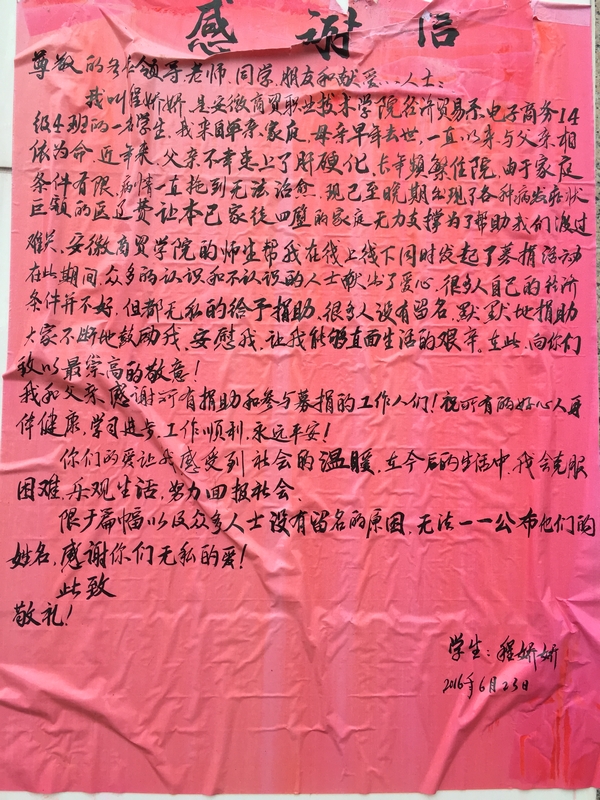 感谢信
尊敬的各位领导老师、同学、朋友和献爱心人士:
我叫程娇娇,是安徽商贸职业技术学院经济贸易系电子商务14
级4班的一名学生。我来自单亲家庭,母亲早年去世,一直以来与父亲相
依为命,近年来,父亲不幸患上了肝硬化,长年频繁住院,由于家庭
条件有限,病情一直拖到无法治愈,现已至晚期出现了各种病发症状
巨额的医辽费让本已家徒四壁的家庭无力支撑为了帮助我们渡过
难关,安微商贸学院的师生帮我在线上线下同时发起了募捐活动
在此期间,众多的认识和不认识的人士献出了爱心,很多人自己的经济
条件并不好,但都无私的给予捐助、很多人没有留名,默默地捐助
大家不断地鼓励我、安慰我,让我能够直面生活的艰辛。在此,向你们
致以最崇高的敬意!
我和父亲感谢所有捐助和参与募捐的工作人们!祝所有的好心人身
体健康,学习进步,工作顺利,永远平安!
你们的爱让我感受到社会的温暖,在今后的生活中,我会克服
困难,乐观生活,努力回报社会、
限于篇幅以及众多人士没有留名的原因,无法一一公布他们的
姓名,感谢你们无私的爱!
此致
敬礼!
学生:程娇娇
2016年6月23日